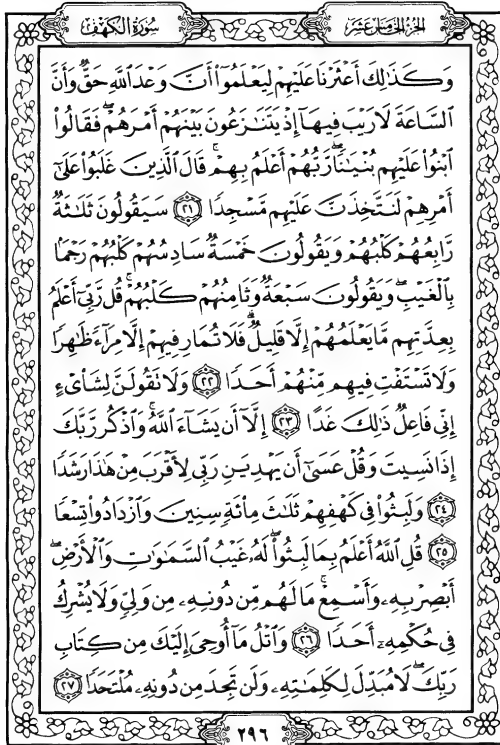 سُورَةُ الكَهْفِ
الجُزءُ الخَامِسَ عَشَرَ
وَكَذَٰلِكَ أَعْثَرْنَا عَلَيْهِمْ لِيَعْلَمُوٓا۟ أَنَّ وَعْدَ ٱللَّهِ حَقٌّ وَأَنَّ
ٱلسَّاعَةَ لَا رَيْبَ فِيهَآ إِذْ يَتَنَٰزَعُونَ بَيْنَهُمْ أَمْرَهُمْ ۖ فَقَالُوا۟
ٱبْنُوا۟ عَلَيْهِم بُنْيَٰنًا ۖ رَّبُّهُمْ أَعْلَمُ بِهِمْ ۚ قَالَ ٱلَّذِينَ غَلَبُوا۟ عَلَىٰٓ
أَمْرِهِمْ لَنَتَّخِذَنَّ عَلَيْهِم مَّسْجِدًا ٢١ سَيَقُولُونَ ثَلَٰثَةٌ
رَّابِعُهُمْ كَلْبُهُمْ وَيَقُولُونَ خَمْسَةٌ سَادِسُهُمْ كَلْبُهُمْ رَجْمًۢا
بِٱلْغَيْبِ ۖ وَيَقُولُونَ سَبْعَةٌ وَثَامِنُهُمْ كَلْبُهُمْ ۚ قُل رَّبِّىٓ أَعْلَمُ
بِعِدَّتِهِم مَّا يَعْلَمُهُمْ إِلَّا قَلِيلٌ ۗ فَلَا تُمَارِ فِيهِمْ إِلَّا مِرَآءً ظَٰهِرًا
وَلَا تَسْتَفْتِ فِيهِم مِّنْهُمْ أَحَدًا ٢٢ وَلَا تَقُولَنَّ لِشَا۟ىْءٍ
إِنِّى فَاعِلٌ ذَٰلِكَ غَدًا ٢٣ إِلَّآ أَن يَشَآءَ ٱللَّهُ ۚ وَٱذْكُر رَّبَّكَ
إِذَا نَسِيتَ وَقُلْ عَسَىٰٓ أَن يَهْدِيَنِ رَبِّى لِأَقْرَبَ مِنْ هَٰذَا رَشَدًا
٢٤ وَلَبِثُوا۟ فِى كَهْفِهِمْ ثَلَٰثَ مِا۟ئَةٍ سِنِينَ وَٱزْدَادُوا۟ تِسْعًا
٢٥ قُلِ ٱللَّهُ أَعْلَمُ بِمَا لَبِثُوا۟ ۖ لَهُۥ غَيْبُ ٱلسَّمَٰوَٰتِ وَٱلْأَرْضِ ۖ
أَبْصِرْ بِهِۦ وَأَسْمِعْ ۚ مَا لَهُم مِّن دُونِهِۦ مِن وَلِىٍّ وَلَا يُشْرِكُ
فِى حُكْمِهِۦٓ أَحَدًا ٢٦ وَٱتْلُ مَآ أُوحِىَ إِلَيْكَ مِن كِتَابِ
رَبِّكَ ۖ لَا مُبَدِّلَ لِكَلِمَٰتِهِۦ وَلَن تَجِدَ مِن دُونِهِۦ مُلْتَحَدًا ٢٧
٢٩٦